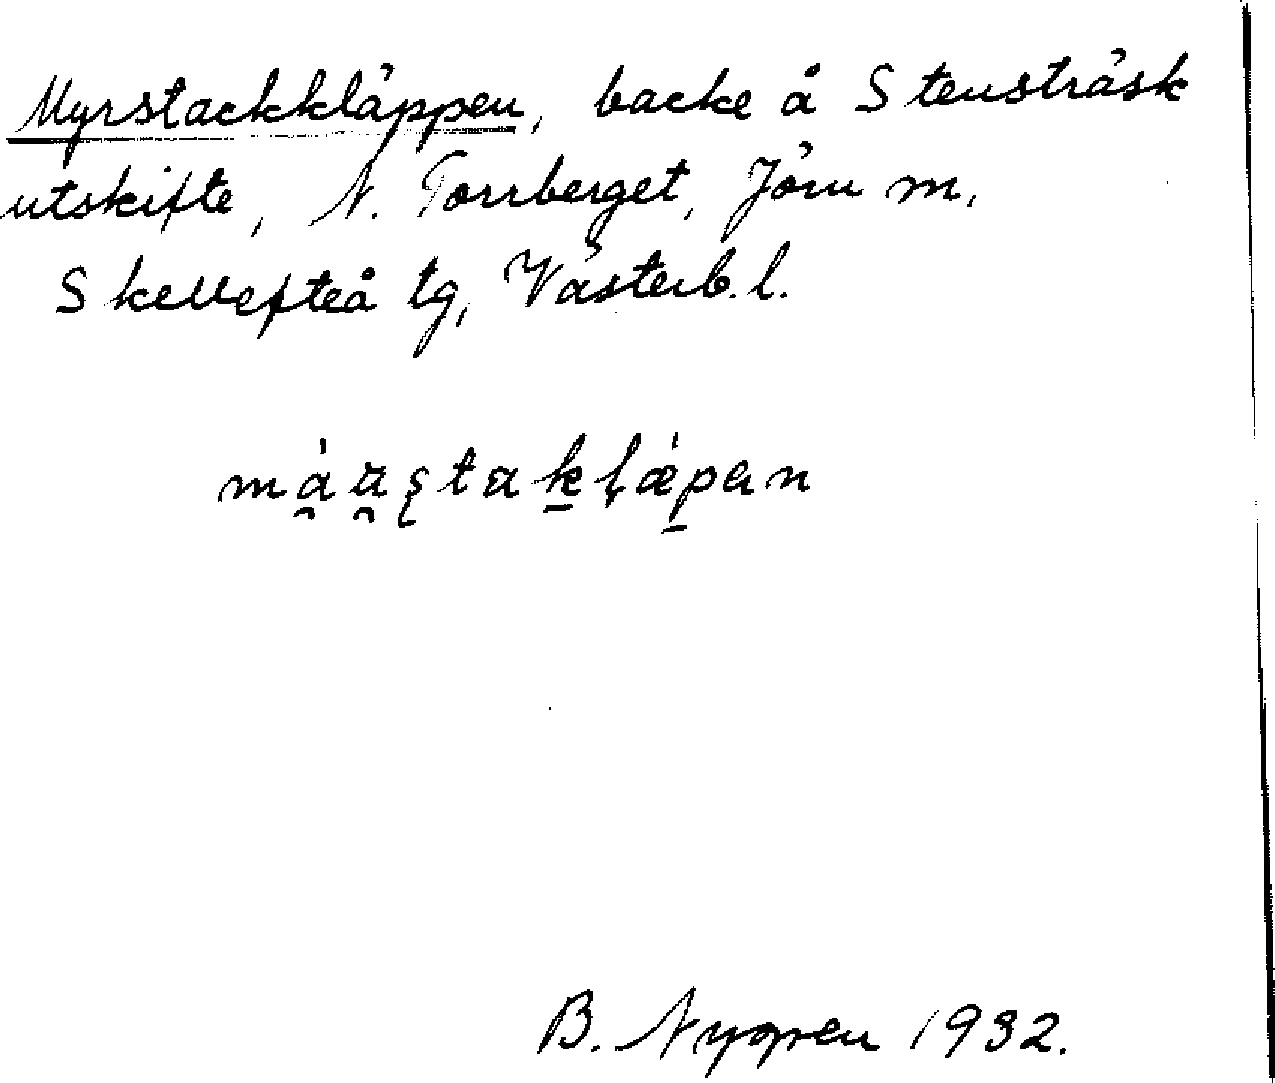 Myrstackkläppen, backe å Stensträsk
utskifte, N. Torrberget, Jörn m.
Skellefteå tg, Västerb. l.
B. Nygren 1932.